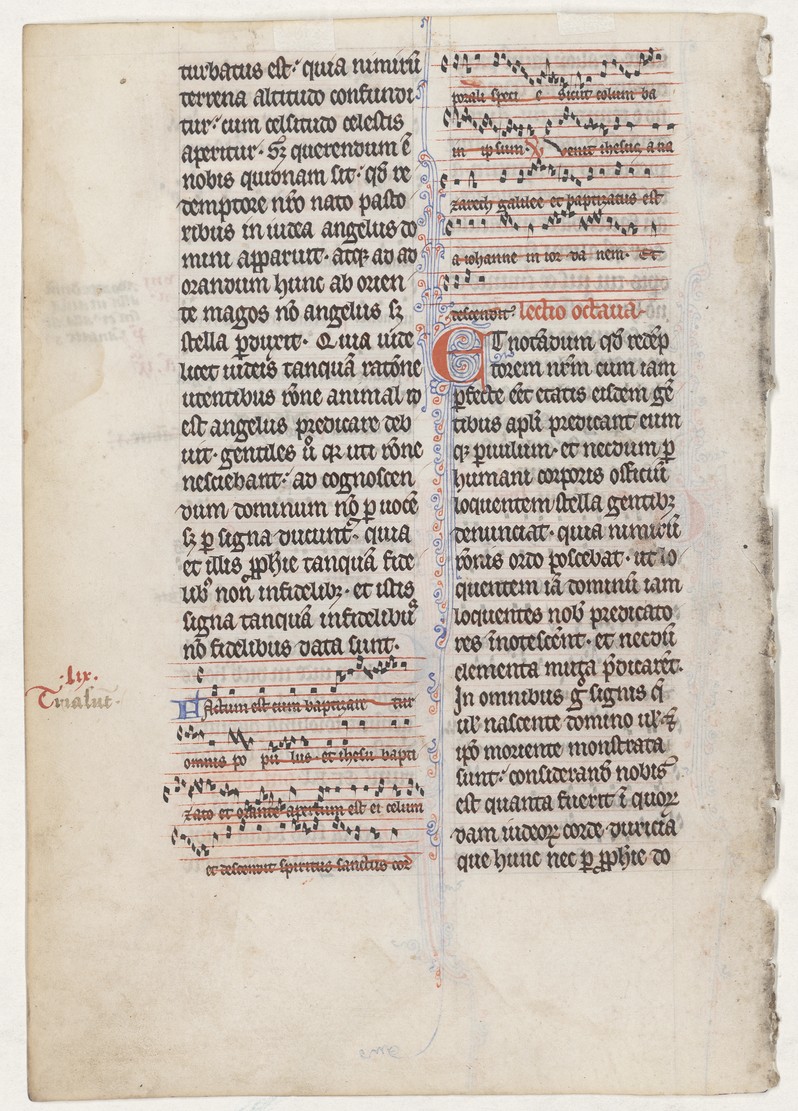 turbatus est: quia nimirū
terrena altitudo confundi
tur: cum celsitudo celestis
aperitur. Sꝫ querendum ē
nobis quidnam sit. qđ re
demptore nr̄o nato pasto
ribus in iudea angelus do
mini apparuit. atqꝫ ad ad
orandum hunc ab orien
te magos nō angelus sꝫ
stella ꝑduxit. Quia vide
licet iudeis tanquā ratōne
utentibus rōne animal id
est angelus predicare deb
uit. gentiles ů qꝛ uti rōne
nesciebant: ad cognoscen
dum dominum nō ꝑ uocē
sꝫ ꝑ signa ducunt᷑. quia
et illis ꝓphie tanquā fide
libꝰ non infidelibꝫ. et istis
signa tanquā infidelibꝰ
nō fidelibus data sunt.
.lix.
Trialut.
Factum est cum baptizare tur
omnis po pu lus. et ihesu bapti
zato et orante apertum est ei celum
et descendit spiritus sanctus cor
porali speci e Sicut colum ba
in ipsum. ℣ Venit ihesus a na
zareth galilee et baptizatus est
a iohanne in ior da nem. Et
descendit. lectio octaua.
ET notādum qđ redēp
torem nrm̄ cum iam
ꝑfecte eēt etatis eisdem gē
tibus apl̄i predicant eum
qꝫ ꝑuulum. et necdum ꝑ
humani corporis officiū
loquentem stella gentibꝫ
denunciat. quia nimirū
rōnis ordo poscebat. ut lo
quentem iā dominū iam
loquentes nob̄ predicato
res īnotescēnt. et necdū
elementa muta p̄dicarēt.
In omnibus gͦ signis q̄
uł nascente domino uł
ip̄o moriente monstrata
sunt: considerand̄ nobis
est quanta fuerit ī quoꝝ
dam iudeoꝝ corde duricia
que hunc nec ꝑ ꝓphie do